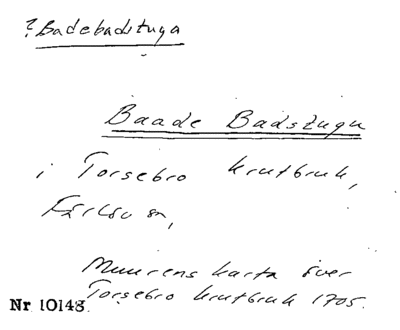 ? Badebadstuga
Baade Badstugu
i Torsebro krutbruk,
Färlöv sn,
Muurens karta över
Torsebro krutbruk 1705.
Nr 10143